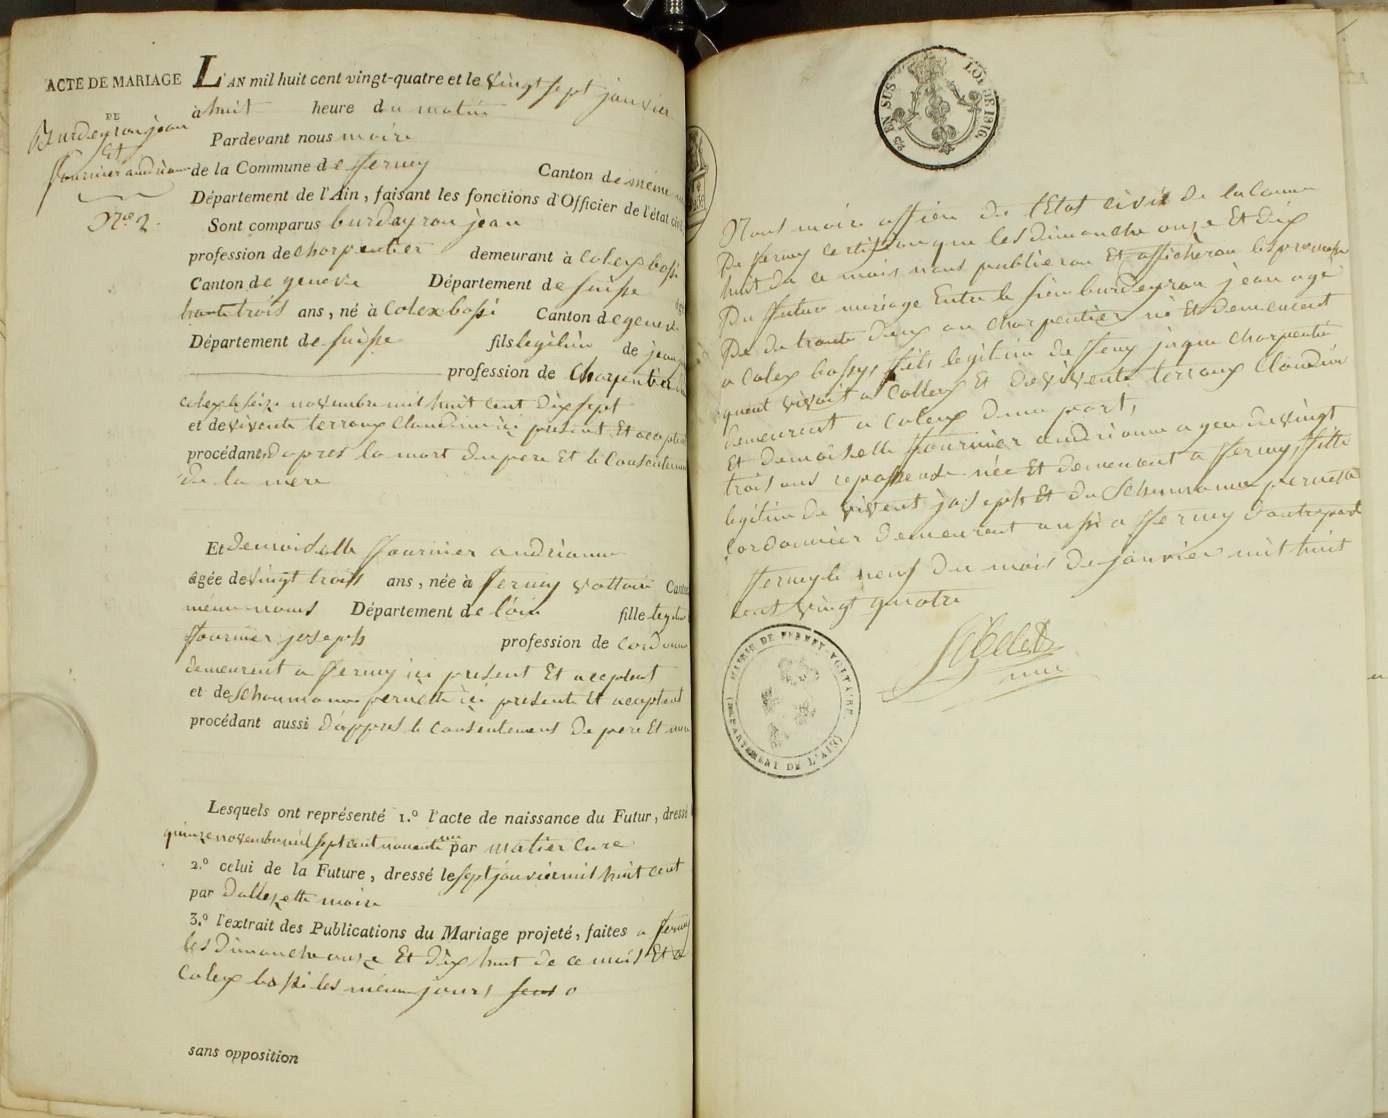 ACTE DE MARIAGE
DE
Burdeyron jean
Et
fournier andrianne
N.º 2.
L'AN mil huit cent vingt-quatre et le vingt sept janvier
à huit heure du matin
Pardevant nous maire
de la Commune de ferney Canton de même
Département de l'Ain, faisant les fonctions d'Officier de l'état civil
Sont comparus burdeyron jean
profession de charpentier demeurant à Colex bossi
Canton de geneve Département de suisse
trante trois ans, né à Colex bossi Canton de geneve
Département de suisse fils legitim de jean
profession de Charpentier
colex le seize novembre mil huit cent dix sept
et de vivente terroux claudine ici present Et acceptant
procédant d'apres la mort du pere Et le Consentement
de la mere
Et demoiselle fournier andrianne
âgée de vingt trois ans, née à ferney voltaire Canton
même nom Département de l'ain fille legitime
fournier joseph profession de cordonnier
demeurent a ferney ici present Et aceptent
et de Schaumann pernette ici presente Et aceptent
procédant aussi d'appres le consentement de pere Et mere
Lesquels ont représenté 1.º l'acte de naissance du Futur, dressé
quinze novembre mil sept cent nonente un par matier Cure
2.º celui de la Future, dressé le sept janvier mil huit cent
par maire
3.º l'extrait des Publications du Mariage projeté, faites a ferney
les Dimanche onze Et dix huit de ce mois Et a
Colex bossi les même jours
sans opposition
25 EN SUS. LOI DE 1816.
Nous maire officier de l'Etat civil de la Commune
De ferney certifions que les dimanche onze Et dix
huit du ce mois nous publieron Et afficheron les promesse
Du futur mariage Entre le sieu burdeyron jean agé
De de trante deux an charpentier né Et demeurent
a Colex bossy, fils legitim de feu jaque charpentier
quent vivoit a Collex Et de vivente terroux Claudine
demeurent a Colex d'une part,
Et demoiselle fournier andrianne agee de vingt
trois ans née Et demeurent a ferney, fille
legitim de vivent joseph Et de Schaumann pernette
cordonnier demeurent aussi a ferney d'autre part
ferney le neuf du mois de janvier mil huit
cent vingt quatre
MAIRIE DE FERNEY-VOLTAIRE
(DÉPARTEMENT DE L'AIN)